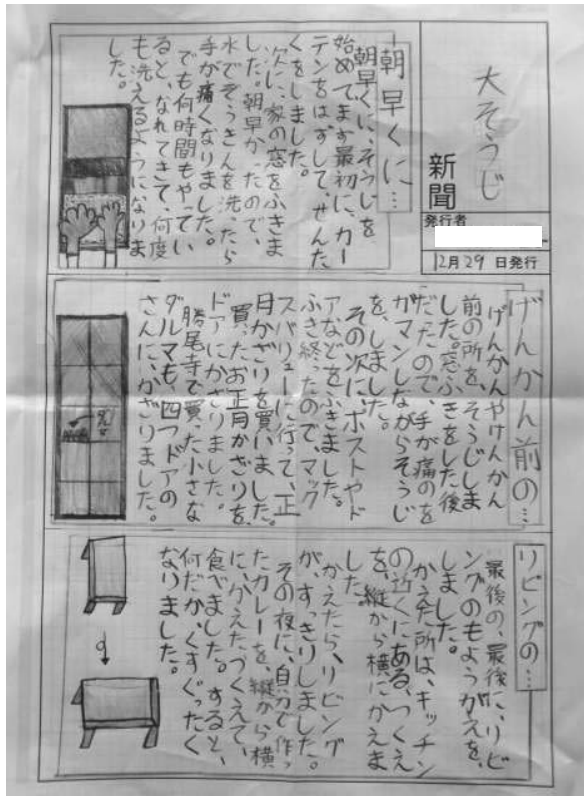 大そうじ
新聞
発行者
12月29日発行
朝早くに…
朝早くに、そうじを
始めてまず最初に、カー
テンをはずして、せんた
くをしました。
次に、家の窓をふきま
した。朝早かったので、
水でぞうきんを洗ったら
手が痛くなりました。
でも何時間もやってい
ると、なれてきて、何度
も洗えるようになりま
した。
げんかん前の…
げんかんやげんかん
前の所を、そうじしま
した。窓ふきをした後
だったので、手が痛のを
ガマンしながらそうじ
を、しました。
その次に、ポストやド
アなどをふきました。
ふき終ったので、マック
スバリューに行って、正
月かざりを買いました。
買ったお正月かざりを、
ドアにかざりました。
勝尾寺で買った小さな
ダルマも、四つドアの
さんに、かざりました。
リビングの…
最後の、最後に、リビ
ングのもようがえを、
しました。
かえた所は、キッチン
の近くにある、つくえ
を、縦から横にかえま
した。
かえたら、リビング
が、すっきりしました。
その夜に、自分で作っ
たカレーを、縦から横
に、かえたつくえで、
食べました。すると、
何だか、くすぐったく
なりました。